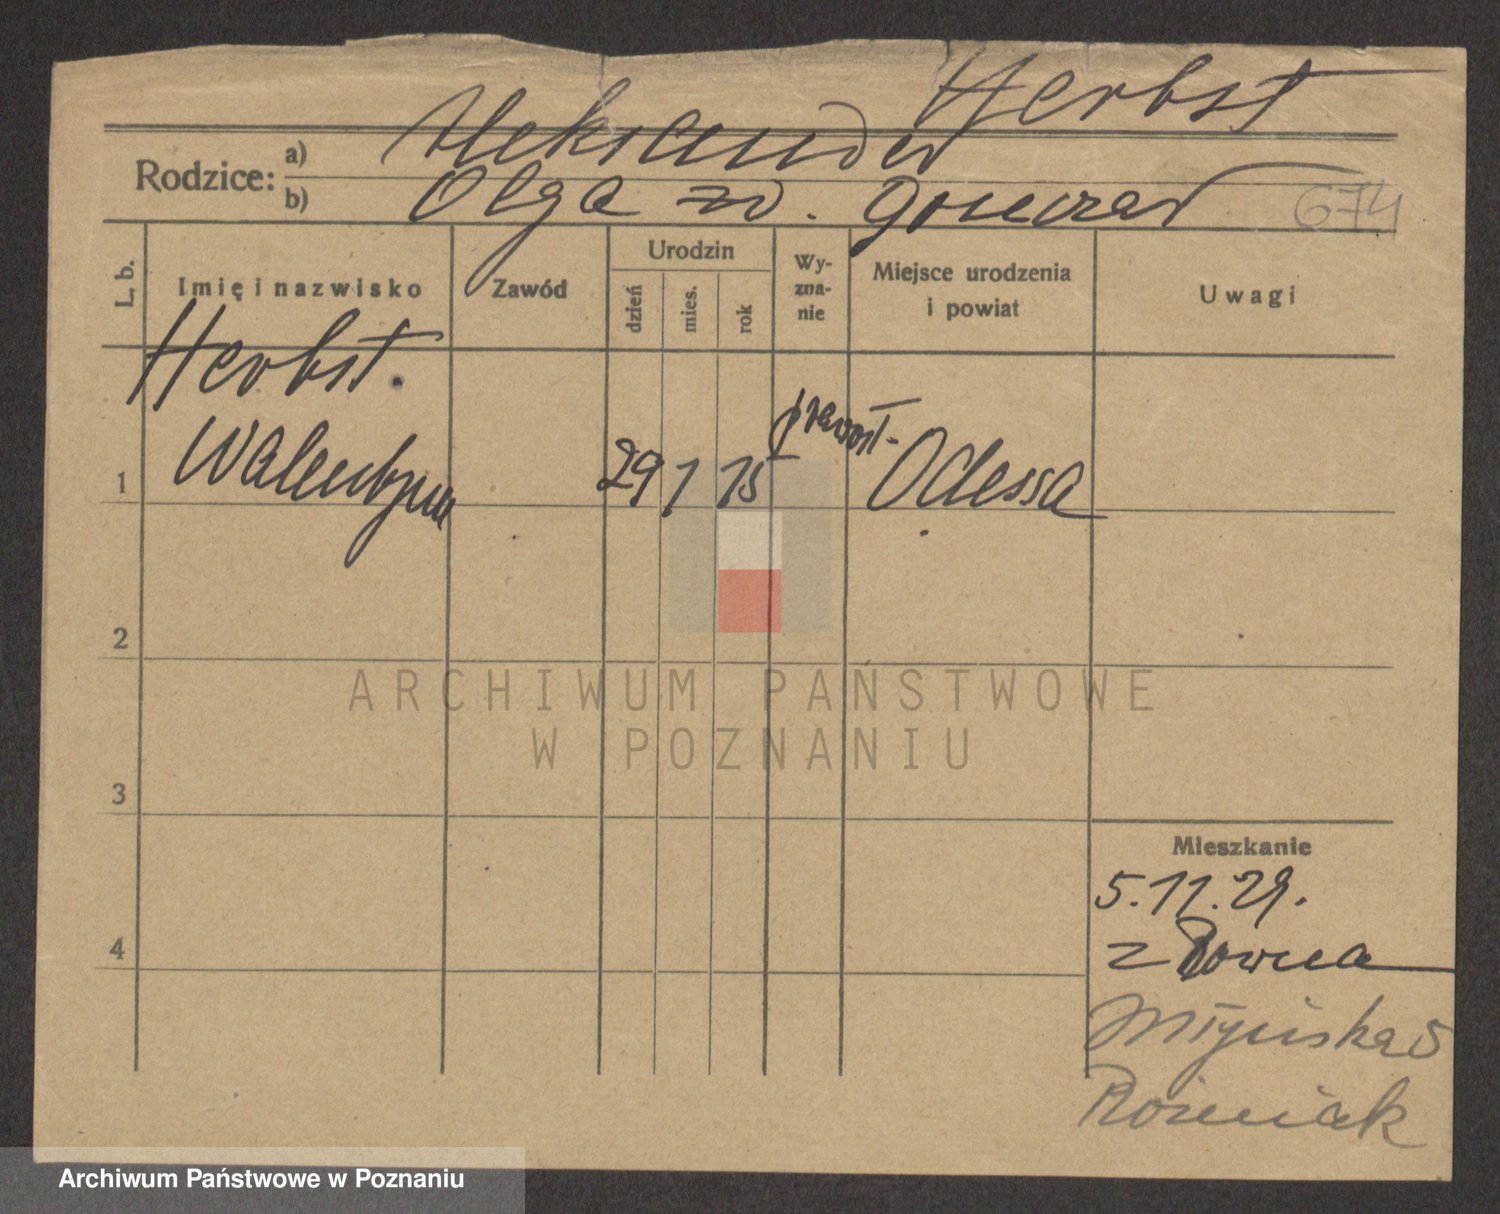 Herbst
Rodzice: a) Aleksander
b) Olga zd. Gonczar
674
L. b.
Imię i nazwisko
Zawód
Urodzin
dzień
mies.
rok
Wy-
zna-
nie
Miejsce urodzenia
i powiat
Uwagi
Herbst
Walentyna
1
29 1 15
prawosł.
Odessa
2
ARCHIWUM PAŃSTWOWE
W POZNANIU
3
Mieszkanie
5.11.29.
z Rowna
4
Młyńska 5
Archiwum Państwowe w Poznaniu